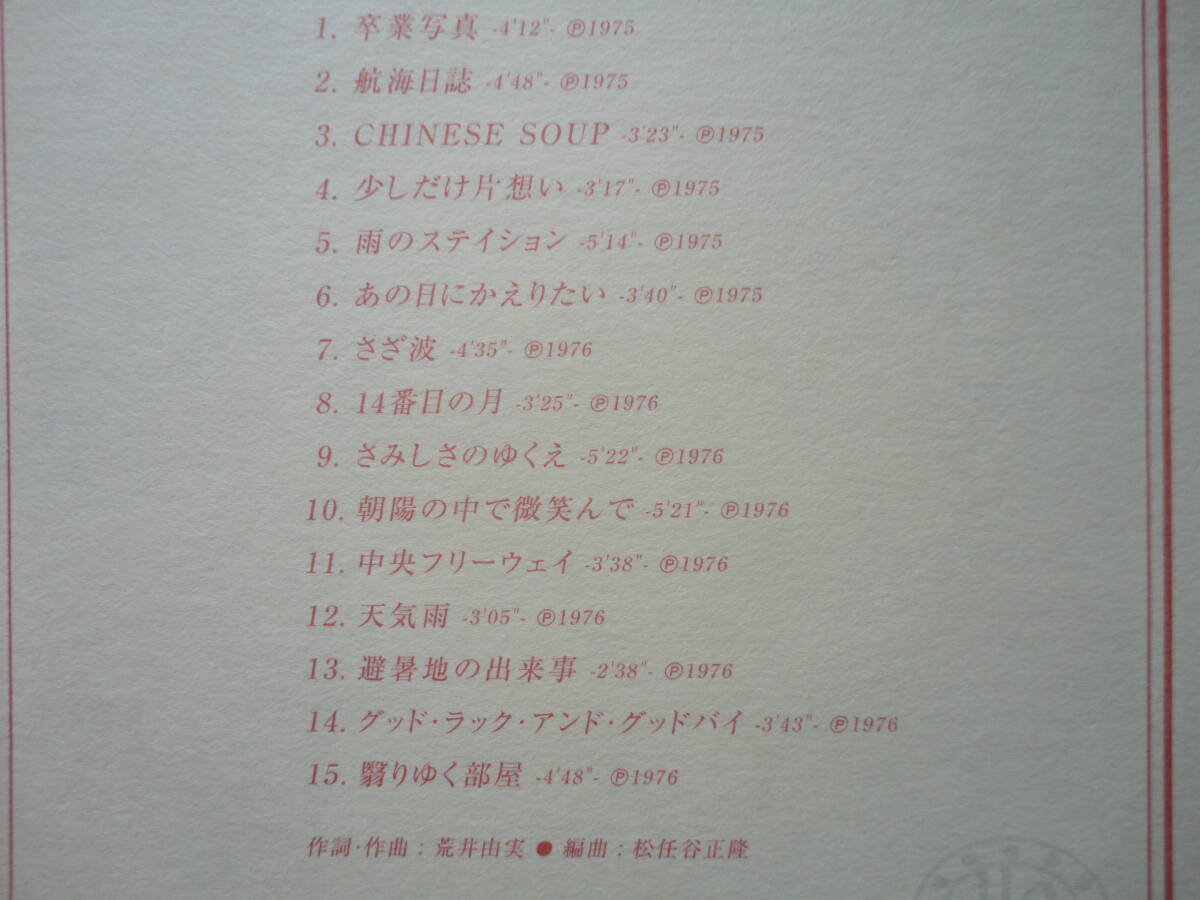 1. 卒業写真 -4'12"- Ⓟ1975
2. 航海日誌 -4'48"- Ⓟ1975
3. CHINESE SOUP -3'23"- Ⓟ1975
4. 少しだけ片想い -3'17"- Ⓟ1975
5. 雨のステイション -5'14"- Ⓟ1975
6. あの日にかえりたい -3'40"- Ⓟ1975
7. さざ波 -4'35"- Ⓟ1976
8. 14番目の月 -3'25"- Ⓟ1976
9. さみしさのゆくえ -5'22"- Ⓟ1976
10. 朝陽の中で微笑んで -5'21"- Ⓟ1976
11. 中央フリーウェイ -3'38"- Ⓟ1976
12. 天気雨 -3'05"- Ⓟ1976
13. 避暑地の出来事 -2'38"- Ⓟ1976
14. グッド・ラック・アンド・グッドバイ -3'43"- Ⓟ1976
15. 翳りゆく部屋 -4'48"- Ⓟ1976
作詞・作曲：荒井由実 ● 編曲：松任谷正隆